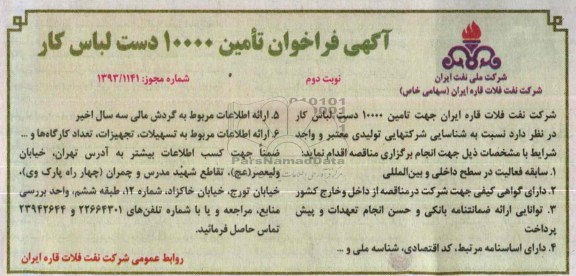 آگهی فراخوان تأمین ۱۰۰۰۰ دست لباس کار
شرکت ملی نفت ایران
شرکت نفت فلات قاره ایران (سهامی خاص)
نوبت دوم
شماره مجوز: ۱۳۹۳/۱۱۴۱
شرکت نفت فلات قاره ایران جهت تامین ۱۰۰۰۰ دست لباس کار
در نظر دارد نسبت به شناسایی شرکتهایی تولیدی معتبر و واجد
شرایط با مشخصات ذیل جهت انجام برگزاری مناقصه اقدام نماید:
۱. سابقه فعالیت در سطح داخلی و بین‌المللی
۲. دارای گواهی کیفی جهت شرکت در مناقصه از داخل و خارج کشور
۳. توانایی ارائه ضمانتنامه بانکی و حسن انجام تعهدات و پیش
پرداخت
۴. دارای اساسنامه مرتبط، کد اقتصادی، شناسه ملی و ...
۵. ارائه اطلاعات مربوط به گردش مالی سه سال اخیر
۶. ارائه اطلاعات مربوط به تسهیلات، تجهیزات، تعداد کارگاه‌ها و ...
ضمناً جهت کسب اطلاعات بیشتر به آدرس تهران، خیابان
ولیعصر(عج)، تقاطع شهید مدرس و چمران (چهار راه پارک وی)،
خیابان تورج، خیابان خاکزاد، شماره ۱۲، طبقه ششم، واحد بررسی
منابع، مراجعه و یا با شماره تلفن‌های ۲۲۶۶۴۳۰۱ و ۲۳۹۴۲۶۴۴
تماس حاصل فرمائید.
روابط عمومی شرکت نفت فلات قاره ایران
ParsNamadData